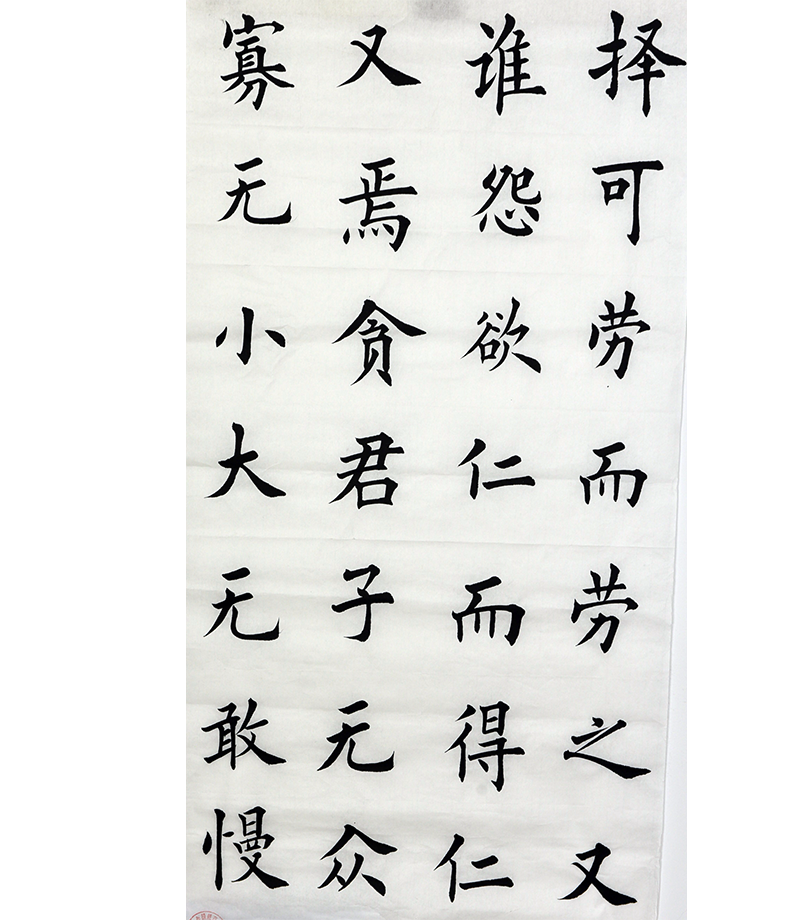 择可劳而劳之又
谁怨欲仁而得仁
又焉贪君子无众
寡无小大无敢慢